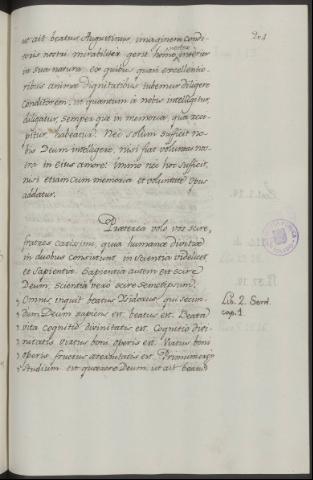 201
ut ait beatus Augustinus, imaginem condi-
toris nostri mirabiliter gerit homo noster interior
in sua natura. ex quibus quasi excellentio-
ribus animæ dignitatibus iubemur diligere
conditorem, ut quantum à nobis intelligitur,
diligatur, semperque in memoria, qua acci-
pitur, habeatur. Nec solum sufficit no-
bis Deum intelligere, nisi fiat voluntas nos-
tra in eius amore. Immo nec hoc sufficit,
nisi etiam cum memoria et voluntate opus
addatur.
Præterea volo vos scire,
fratres carissimi, quia humanæ divitiæ
in duobus consistunt, in scientia videlicet
et sapientia. Sapientia autem est scire
Deum, scientia vero scire semetipsum.
Omnis, inquit beatus Isidorus, qui secun-
dum Deum sapiens est, beatus est. Beata
vita cognitio divinitatis est. Cognitio divi-
nitatis virtus boni operis est. Virtus boni
operis fructus æternitatis est. Primum ergo
studium est quærere Deum, ut ait beatus
Lib. 2. Sent.
cap. 1.